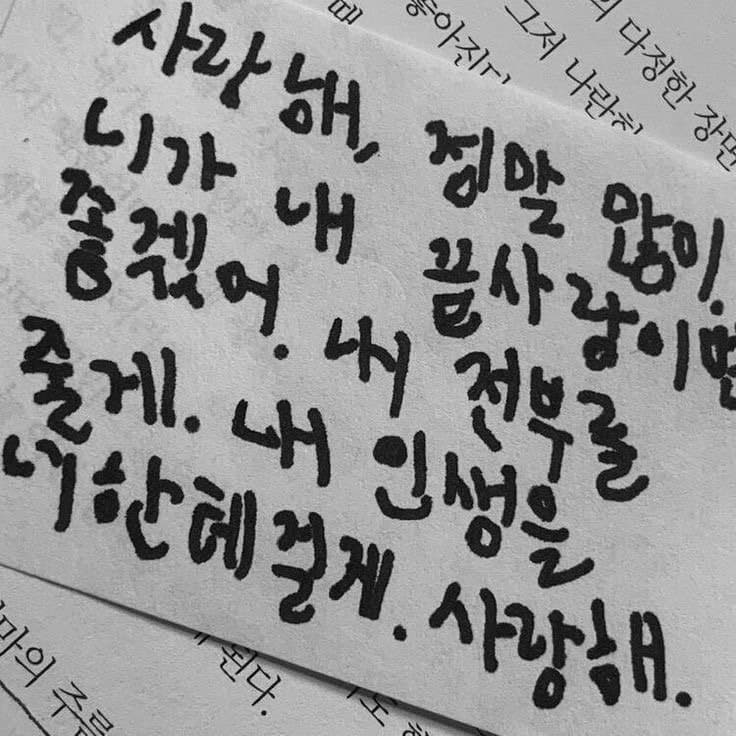 의 다정한 장면
그저 나란히
좋아진다
때
사랑해, 정말 많이.
니가 내 끝사랑이면
좋겠어. 내 전부를
줄게. 내 인생을
너한테 걸게. 사랑해.
마의 주름
된다.